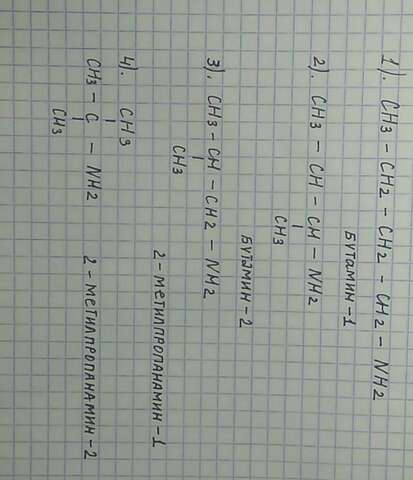 1). CH3 - CH2 - CH2 - CH2 - NH2
БУТАМИН-1
2). CH3 - CH - CH - NH2
|
CH3
БУТАМИН-2
3). CH3 - CH - CH2 - NH2
|
CH3
2-МЕТИЛПРОПАНАМИН-1
4). CH3
|
CH3 - C - NH2
|
CH3
2-МЕТИЛПРОПАНАМИН-2